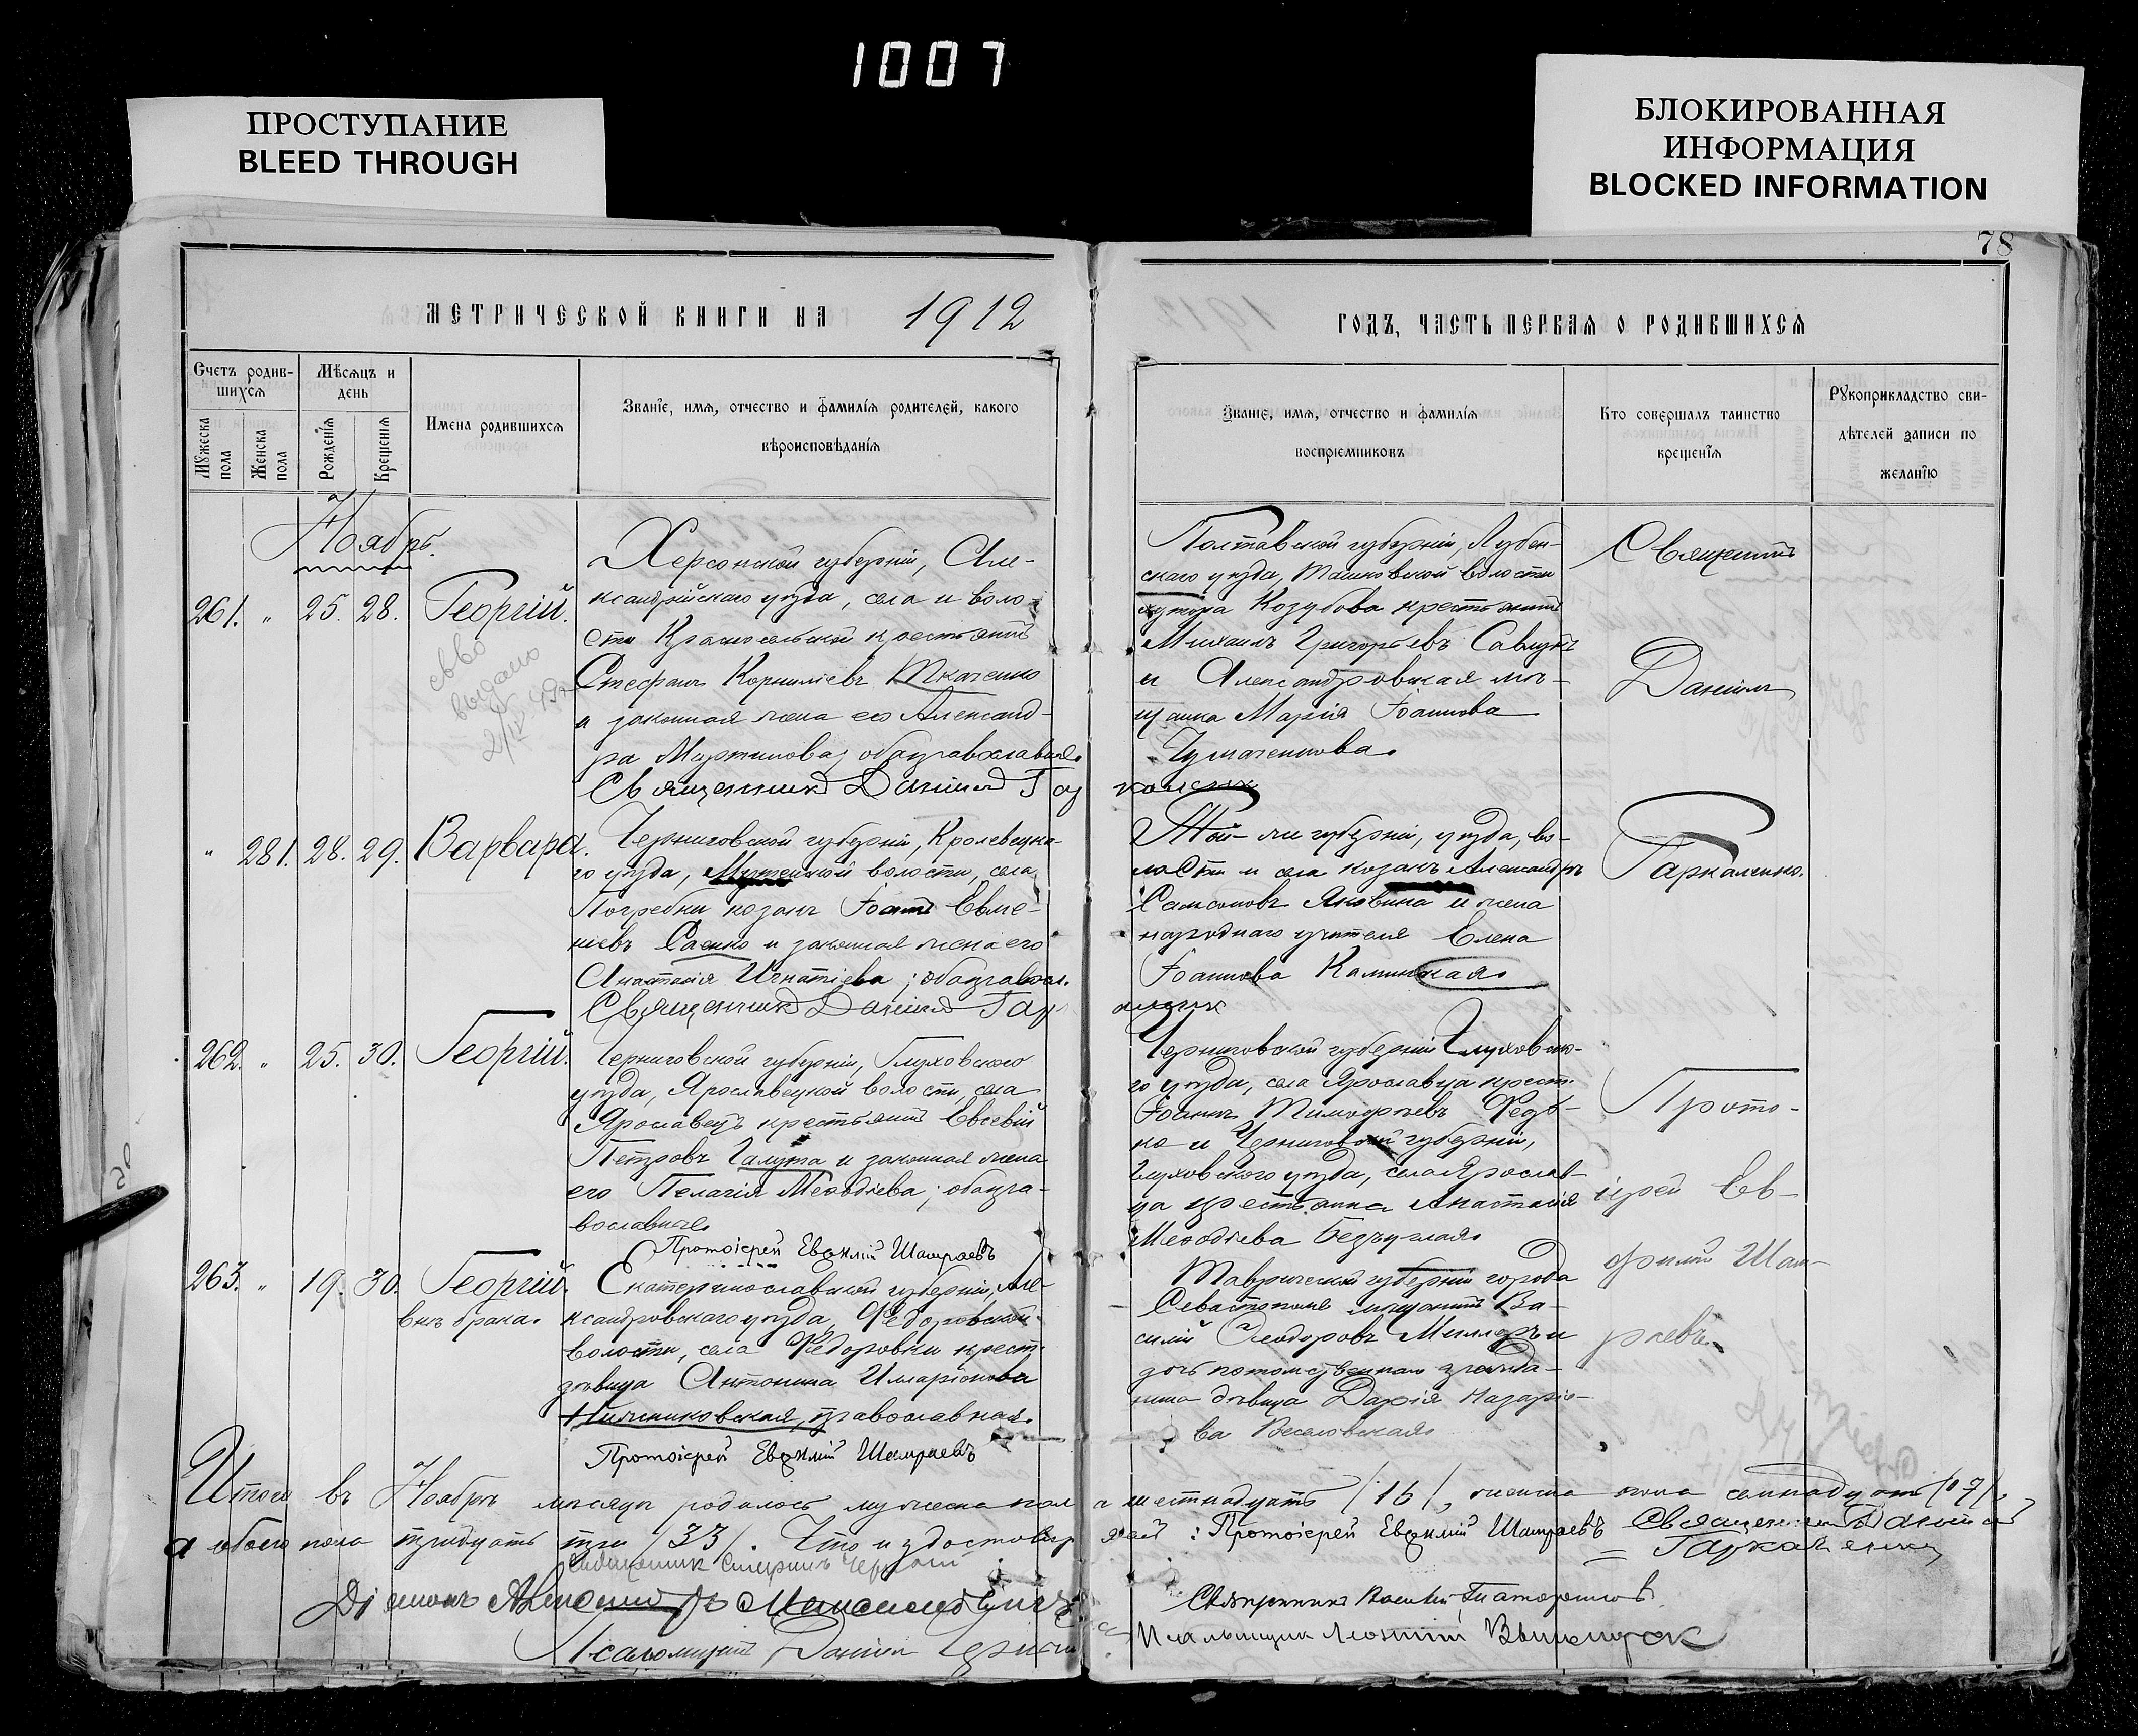 1007
ПРОСТУПАНИЕ
BLEED THROUGH
БЛОКИРОВАННАЯ
ИНФОРМАЦИЯ
BLOCKED INFORMATION
78
МЕТРИЧЕСКОЙ КНИГИ НА 1912
ГОДЪ, ЧАСТЬ ПЕРВАЯ О РОДИВШИХСЯ
Счетъ родив-
шихся
Мѣсяцъ и
день
Мужеска
пола
Женска
пола
Рожденїя
Крещенїя
Имена родившихся
Званїе, имя, отчество и фамилїя родителей, какого
вѣроисповѣданїя
Званїе, имя, отчество и фамилїя
воспрїемниковъ
Кто совершалъ таинство
крещенїя
Рукоприкладство сви-
дѣтелей записи по
желанїю
Ноябрь.
261. " 25. 28. Георгій.
Херсонской губерніи, Але-
ксандрійскаго уѣзда, села и воло-
сти Красносельской крестьянинъ
Стефанъ Корниліевъ Ткаченко
и законная жена его Александ-
ра Мартинова, оба православные.
Священникъ Даніилъ Гар
Полтавской губерніи, Лубен-
скаго уѣзда, волости
хутора Козубова крестьянинъ
Михаилъ Григорьевъ
и Александровская мѣ-
щанка Марія Іоаннова
Чумаченкова.
Священникъ
Даніилъ
Гаркаленко.
" 281. 28. 29. Варвара.
Черниговской губерніи, Кролевецка-
го уѣзда, волости, села
Погребки козакъ Іоаннъ Евме-
ніевъ Саенко и законная жена его
Анастасія Игнатіева; оба правосл.
Священникъ Даніилъ Гар
Той-же губерніи, уѣзда, во-
лости и села козакъ Александръ
Самсоновъ Яковина и жена
народнаго учителя Елена
Іоаннова Каминская.
262. " 25. 30. Георгій.
Черниговской губерніи, Глуховскаго
уѣзда, Ярославецкой волости, села
Ярославецъ крестьянинъ Евсевій
Петровъ Галута и законная жена
его Пелагія Меѳодіева; оба пра-
вославные.
Протоіерей Евѳимій Шамраевъ
Черниговской губерніи Глуховска-
го уѣзда, села Ярославца крест.
Іоаннъ Тимоѳеевъ Федь-
ко и Черниговской губерніи,
Глуховскаго уѣзда, села Ярослав-
ца крестьянка Анастасія
Меѳодіева Безъуглая.
Прото-
іерей Ев-
фимій Шам-
раевъ.
263. " 19. 30. Георгій.
внѣ брака.
Екатеринославской губерніи, Але-
ксандровскаго уѣзда, Федоровской
волости, села Федоровки крест.
дѣвица Антонина Иларіонова
православная.
Протоіерей Евѳимій Шамраевъ
Таврической губерніи города
Севастополя мѣщанинъ Ва-
силій Ѳеодоровъ Миллеръ и
дочь потомственнаго гражда-
нина дѣвица Дарія Назаріе-
ва Веселовская.
Итого въ Ноябрѣ мѣсяцѣ родилось мужеска пола шестнадцать /16/, женска пола семнадцать /17/,
а обоего пола тридцать три /33/. Что и удостовѣряемъ: Протоіерей Евѳимій Шамраевъ Священникъ Даніилъ
Гаркаленко
Діаконъ
Священникъ Василій
Псаломщикъ Даніилъ
Псаломщикъ Леонтій